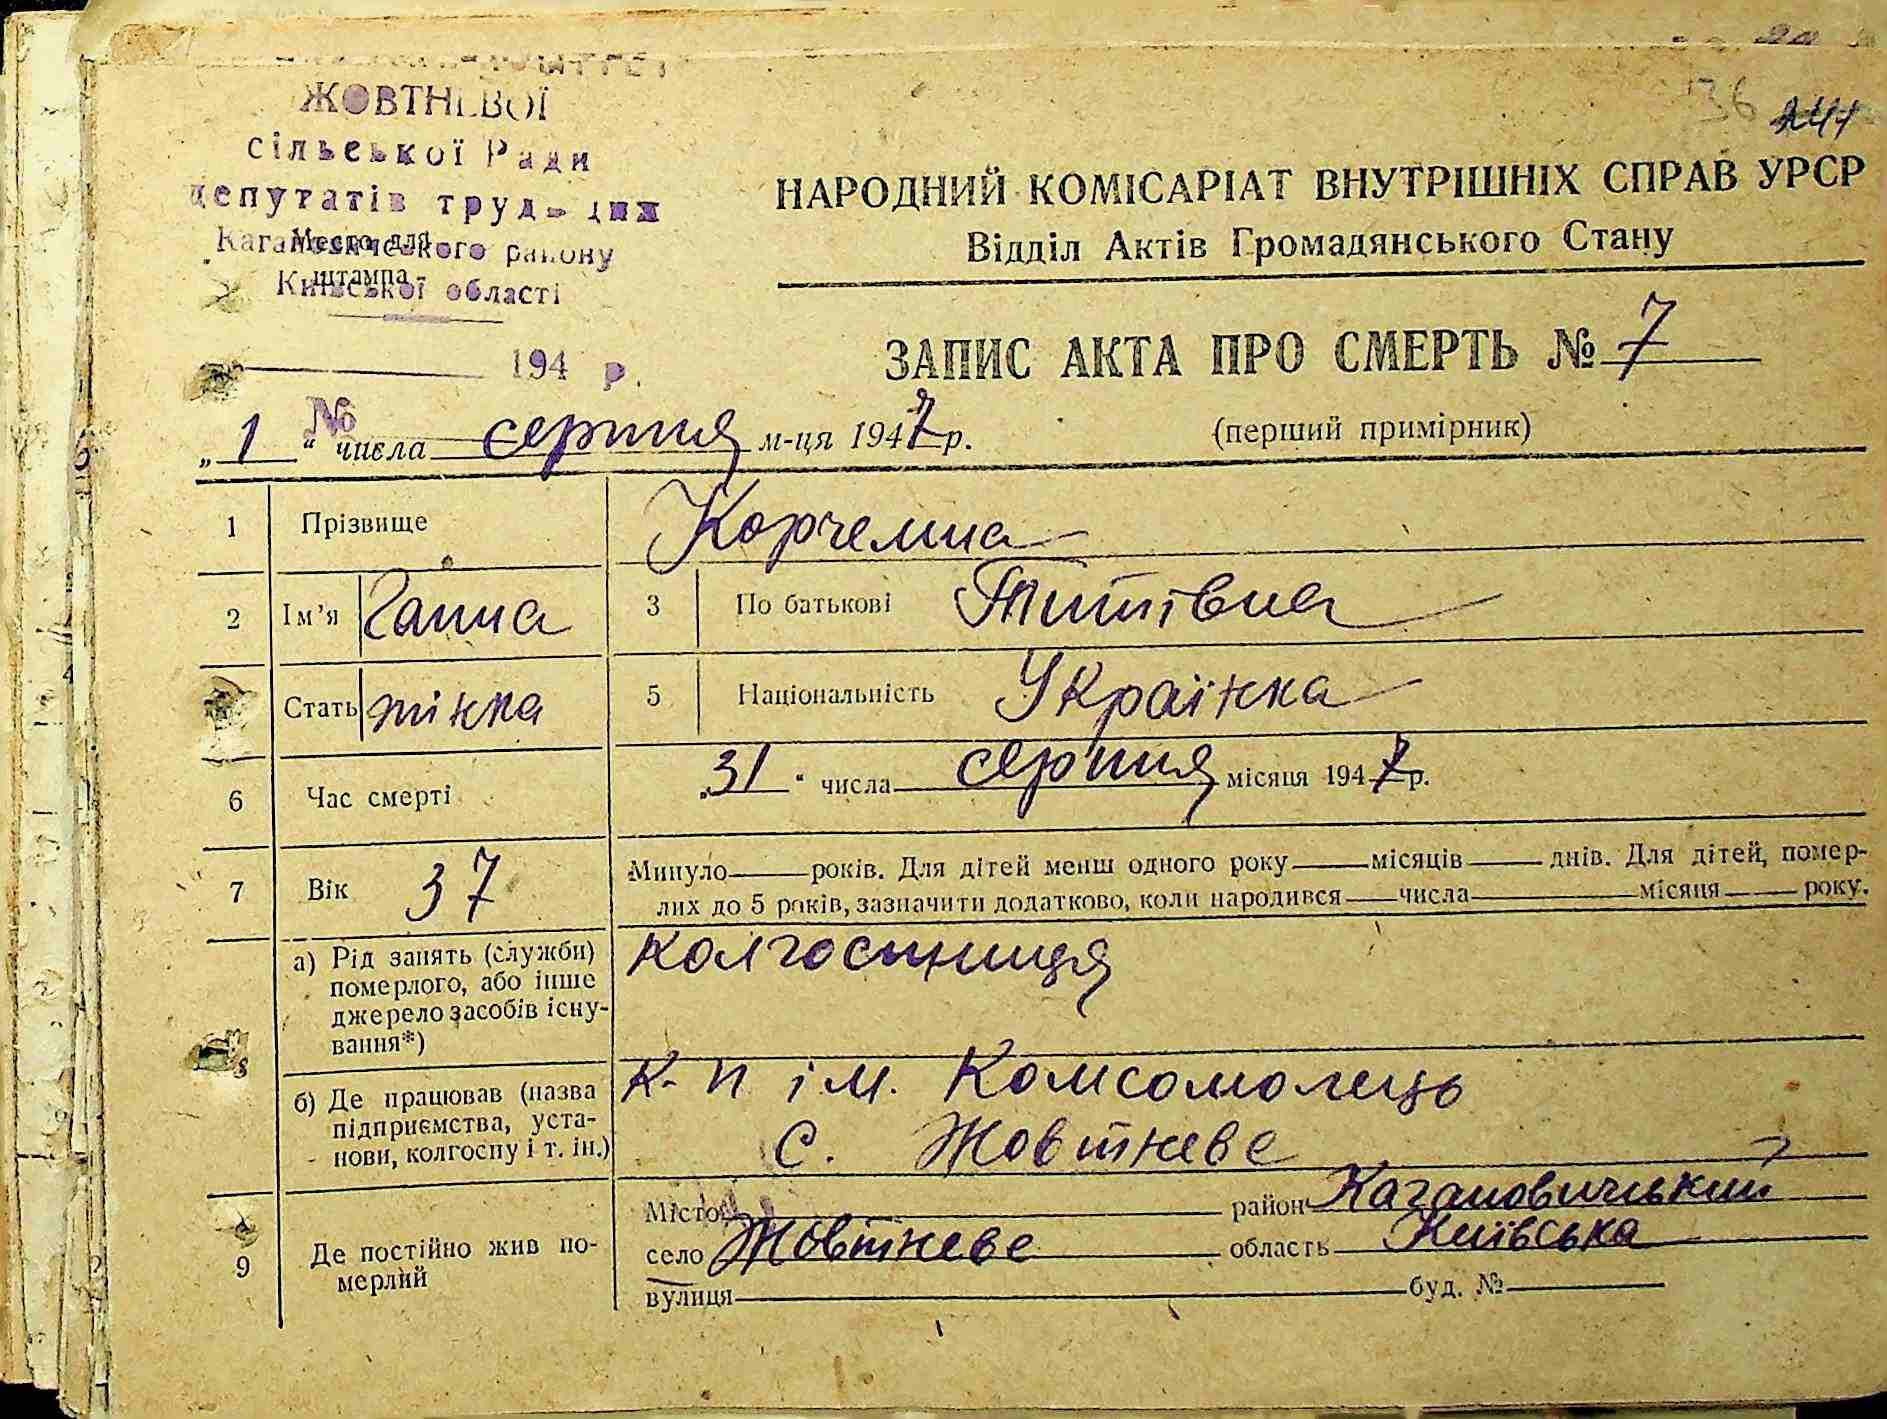 ЖОВТНЕВОЇ
сільської Ради
депутатів трудящих
Кагановичеського району
Место для
Київської області
штампа
36 241
194 р.
№
НАРОДНИЙ КОМІСАРІАТ ВНУТРІШНІХ СПРАВ УРСР
Відділ Актів Громадянського Стану
ЗАПИС АКТА ПРО СМЕРТЬ № 7
„ 1 “ числа серпня м-ця 1947 р.
(перший примірник)
1 Прізвище Корчемна
2 Ім'я Ганна 3 По батькові Титівна
Стать жінка 5 Національність Українка
6 Час смерті „31“ числа серпня місяця 1947 р.
7 Вік 37 Минуло років. Для дітей менш одного року місяців днів. Для дітей, помер-
лих до 5 років, зазначити додатково, коли народився числа місяця року.
а) Рід занять (служби)
померлого, або інше
джерело засобів існу-
вання*)
колгоспниця
8
б) Де працював (назва
підприємства, уста-
нови, колгоспу і т. ін.)
к-п ім. Комсомолець
с. Жовтневе
9 Де постійно жив по-
мерлий
Місто район Кагановичський
село Жовтневе область Київська
вулиця буд. №